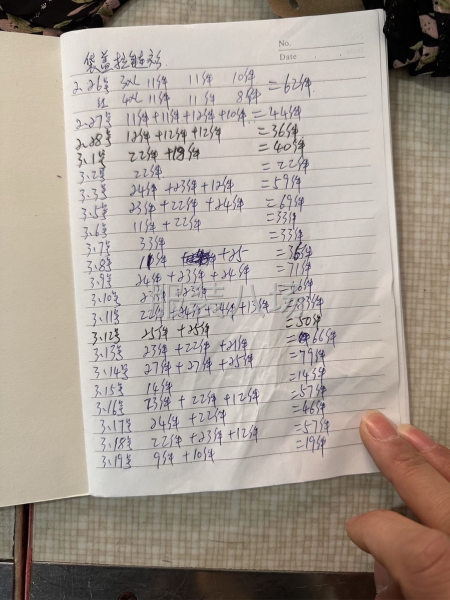 袋盖拉链衫
No.
Date
2.26号 3XL 11件 11件 10件 =62件
红 4XL 11件 11件 8件
2.27号 11件+11件+12件+10件=44件
2.28号 12件+12件+12件 =36件
3.1号 22件+18件 =40件
3.2号 22件 =22件
3.3号 24件+23件+12件 =59件
3.5号 23件+22件+24件 =69件
3.6号 11件+22件 =33件
3.7号 33件 =33件
3.8号 11件 +25 =36件
3.9号 24件+23件+24件 =71件
3.10号 23件+23件 =46件
3.11号 22件+24件+24件+13件=83件
3.12号 25件+25件 =50件
3.13号 23件+22件+21件 =66件
3.14号 27件+27件+25件 =79件
3.15号 14件 =14件
3.16号 23件+22件+12件 =57件
3.17号 24件+22件 =46件
3.18号 22件+23件+12件 =57件
3.19号 9件+10件 =19件